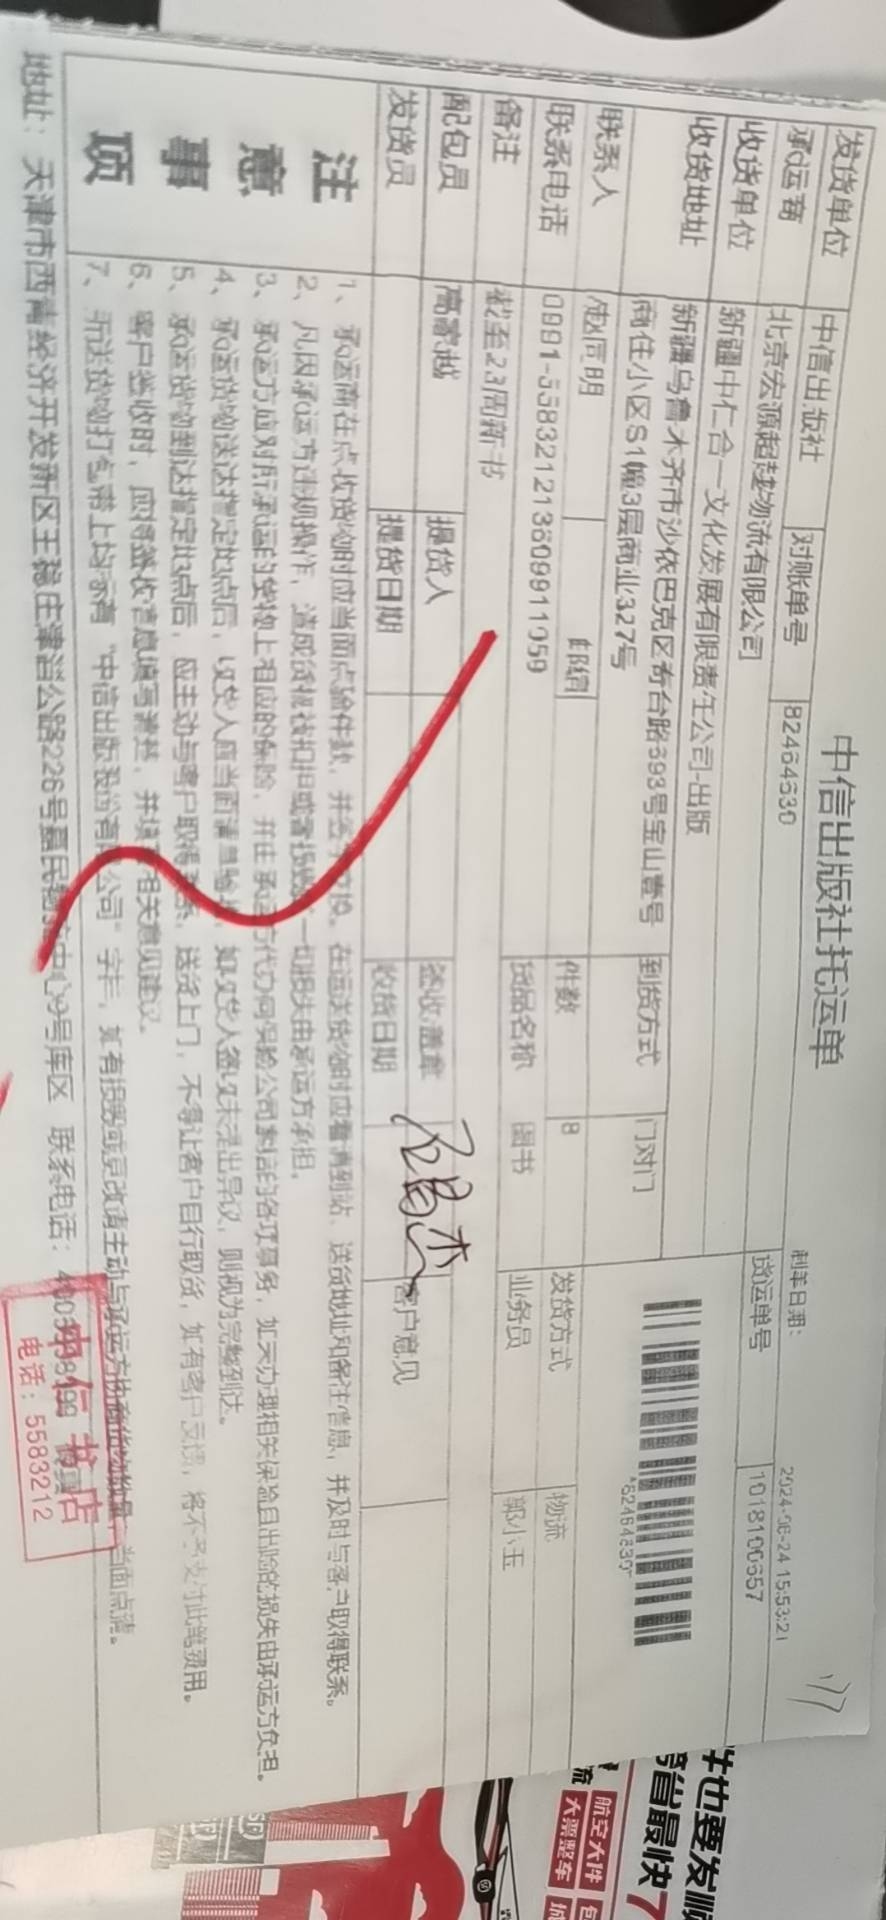 中信出版社托运单
制单日期： 2024-06-24 15:53:21
发货单位 中信出版社 对账单号 82464630 货运单号 1018100657
承运商 北京宏源超越物流有限公司
收货单位 新疆中仁合一文化发展有限责任公司-出版
收货地址 新疆乌鲁木齐市沙依巴克区奇台路693号宝山壹号
商住小区S1幢3层商业327号 到货方式 门对门
*82464630*
联系人 赵同明 邮编 件数 8 发货方式 物流
联系电话 0991-558321213609911059 货品名称 图书 业务员 郭小玉
备注 截至23周新书
配包员 高家越 提货人 签收/盖章 客户意见
发货员 提货日期 收货日期
注意事项
1、承运商在点收货物时应当面点验件数，并签字口授。在运送货物时应看清到站、送货地址和备注信息，并及时与客户取得联系。
2、凡因承运方违规操作，造成货物被扣担或者损毁，一切损失由承运方承担。
3、承运方应对所承运的货物上相应的保险，并由承运方代办向保险公司索赔的各项事务，如未办理相关保险且出险的损失由承运方负担。
4、承运货物送达指定地点后，收货人应当面清点验收，如收货人签收未提出异议，则视为完整到达。
5、承运货物到达指定地点后，应主动与客户取得联系，送货上门，不得让客户自行取货，如有客户反馈，将不予支付此笔费用。
6、客户签收时，应将签收信息填写清楚，并填写相关意见建议。
7、所送货物打包带上均示有“中信出版股份有限公司”字样，如有损毁或更改请主动与承运方协商货物数量，当面点清。
地址： 天津市西青经济开发新区王稳庄津淄公路226号嘉民物流中心9号库区 联系电话：
中仁书店
电话：5583212
件也要发顺
跨省最快7
航空大件
大票整车